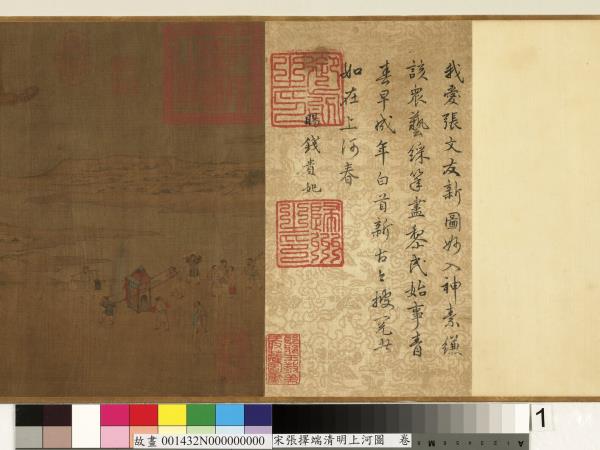 我愛張文友新圖妙入神素縑
該眾藝綵筆盡黎民始事青
春早成年白首新古
如在上河春
賜錢貴妃
故畫 001432N000000000
宋張擇端清明上河圖 卷
1